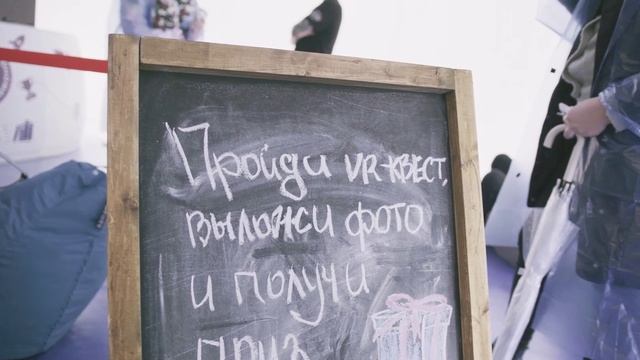 Пройди VR-КВЕСТ,
Выложи фото
и получи
приз